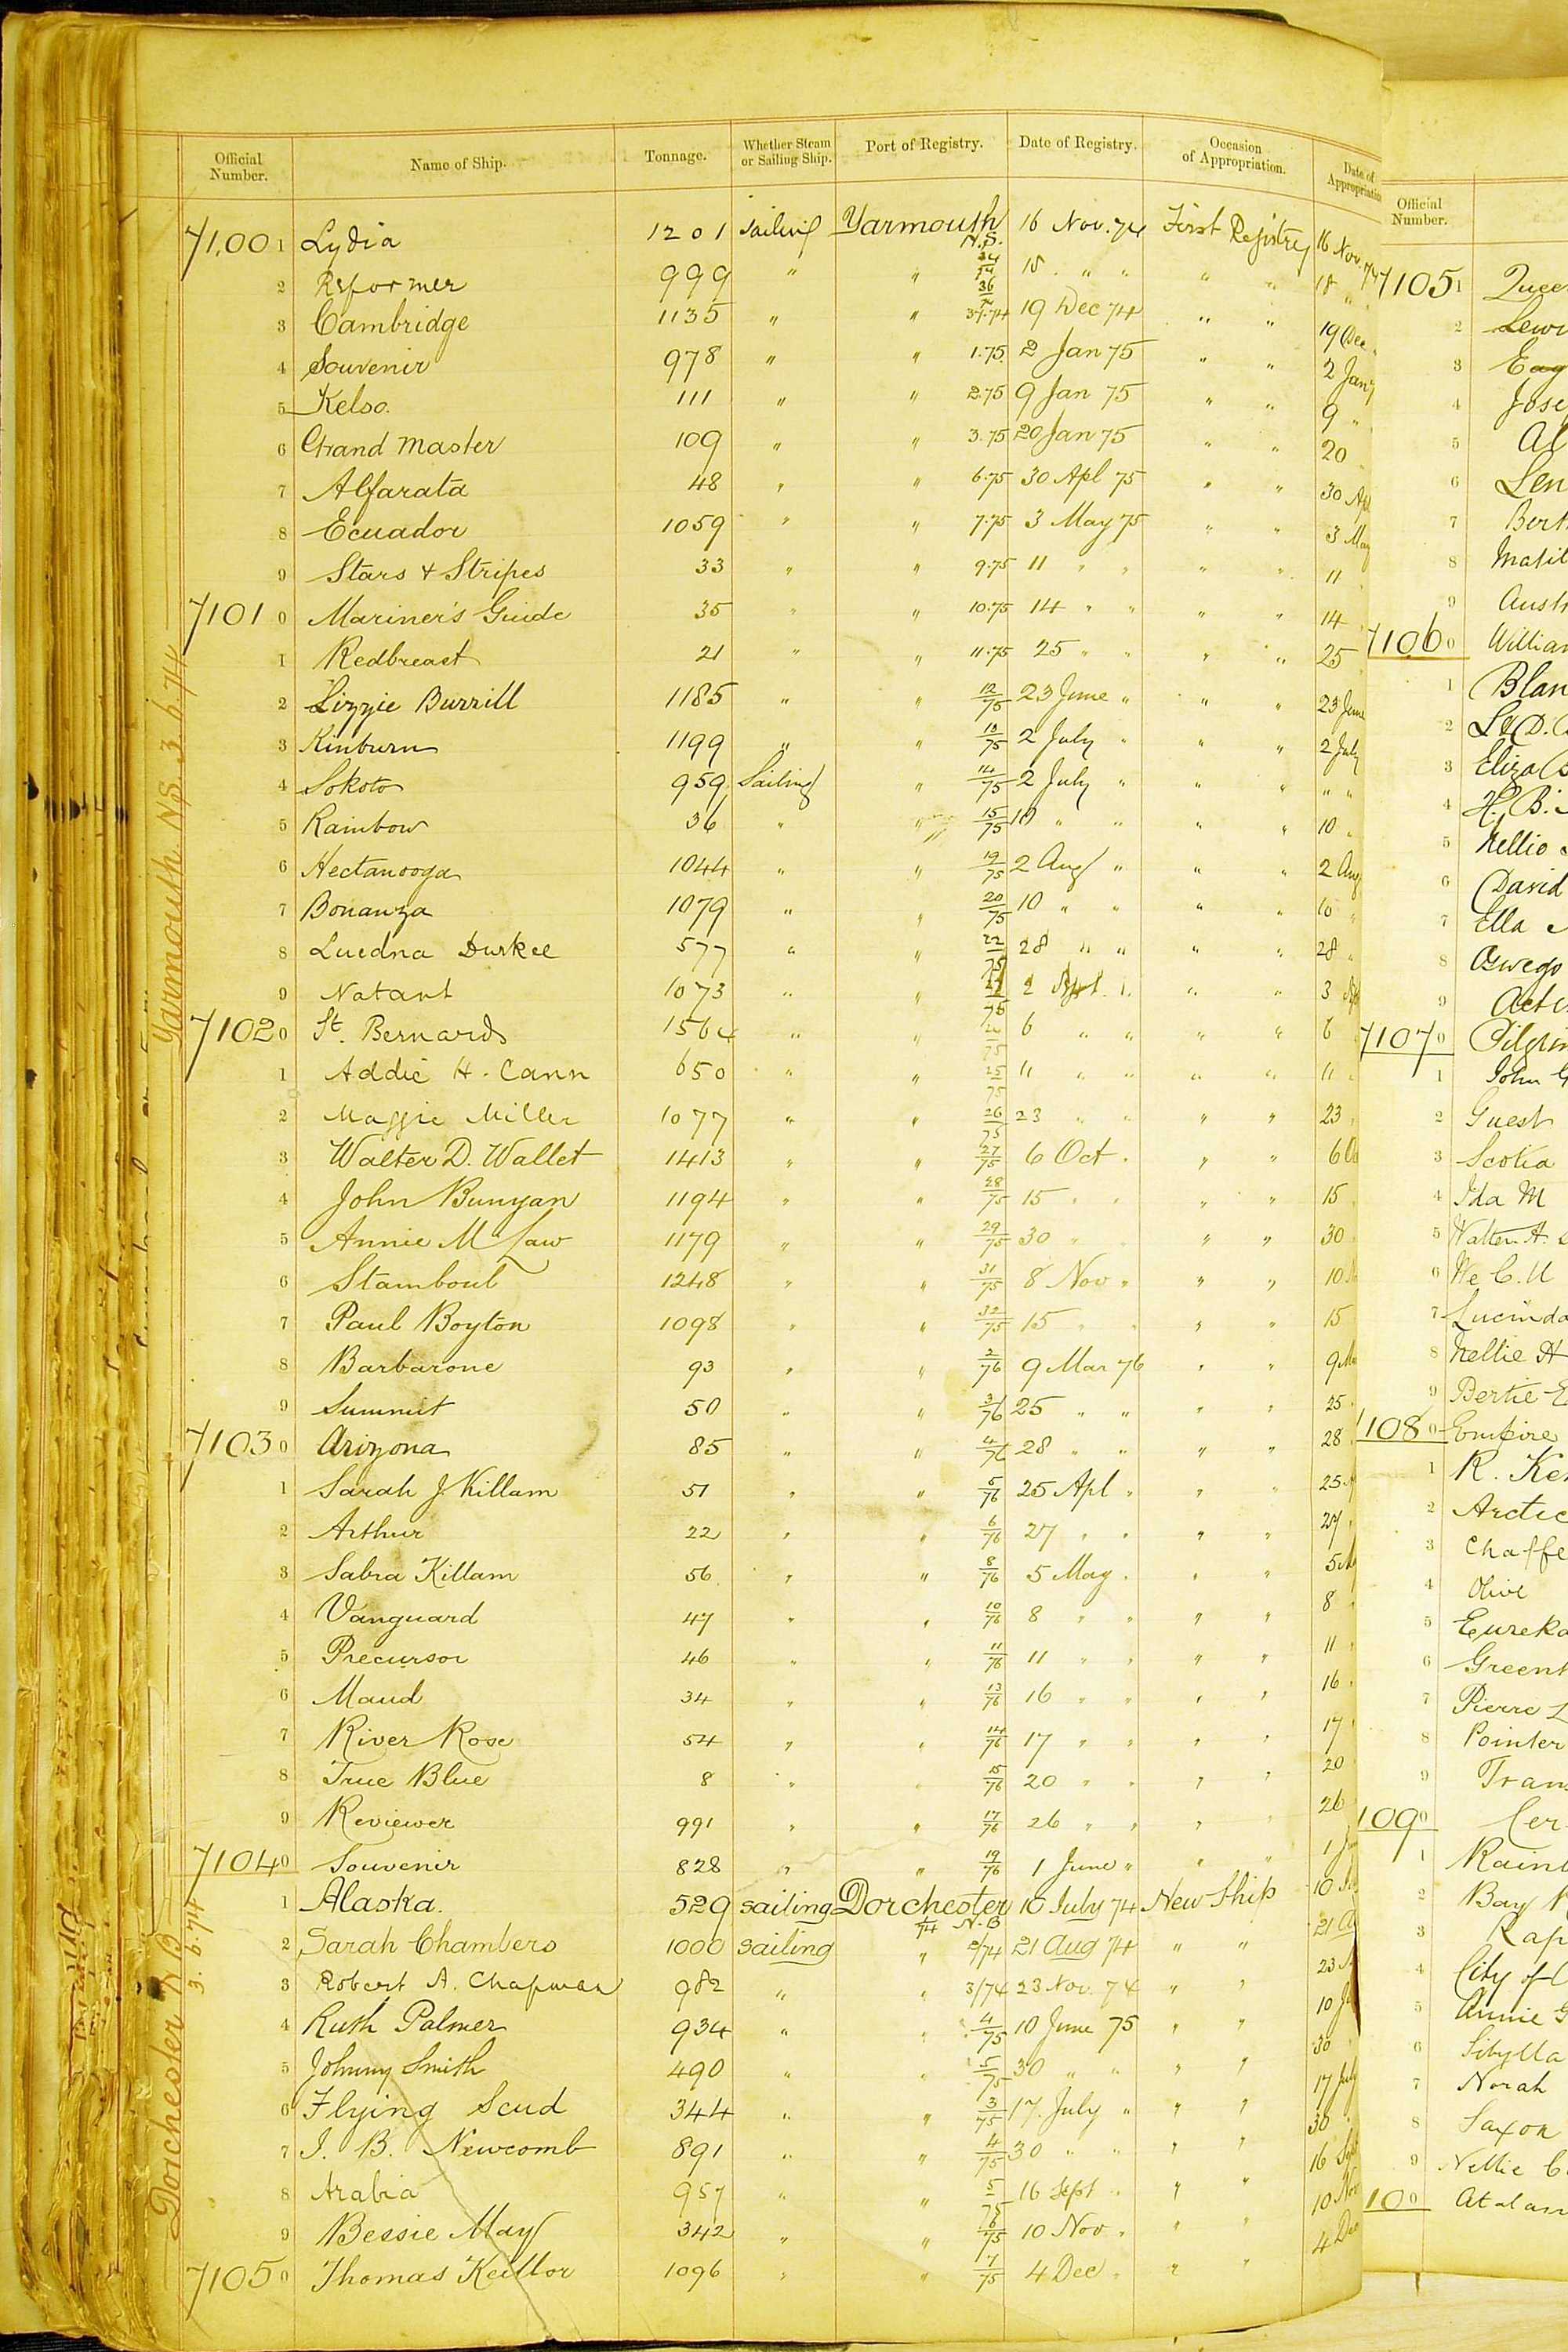 Official Number. Name of Ship. Tonnage. Whether Steam or Sailing Ship. Port of Registry. Date of Registry. Occasion of Appropriation. Date of Appropriation
71,001 Lydia 1201 sailing Yarmouth N.S. 16 Nov. 74 First Registry 16 Nov. 74
2 Reformer 999 " " 34/74 18 " " " " 18 "
3 Cambridge 1135 " " 37.74 19 Dec 74 " " 19 Dec
4 Souvenir 978 " " 1.75 2 Jan 75 " " 2 Jany
5 Kelso. 111 " " 2.75 9 Jan 75 " " 9 "
6 Grand Master 109 " " 3.75 20 Jan 75 " " 20
7 Alfarata 48 " " 6.75 30 Apl 75 " " 30 Apl
8 Ecuador 1059 " " 7.75 3 May 75 " " 3 May
9 Stars & Stripes 33 " " 9.75 11 " " " " 11
71010 Mariner's Guide 35 " " 10.75 14 " " " " 14
1 Redbreast 21 " " 11.75 25 " " " " 25
2 Lizzie Burrill 1185 " " 12/75 23 June " " " 23 June
3 Kinburn 1199 " " 13/75 2 July " " " 2 July
4 Sokoto 959 Sailing " 14/75 2 July " " " " "
5 Rainbow 36 " " 15/75 10 " " " " 10 "
6 Hectanooga 1044 " " 19/75 2 Aug " " " 2 Aug
7 Bonanza 1079 " " 20/75 10 " " " " 10 "
8 Luedna Durkee 577 " " 22/75 28 " " " " 28 "
9 Natant 1073 " " 2 Sept. " " " 3 Sep
71020 St. Bernard 1564 " " 6 " " " " 6
1 Addie H. Cann 650 " " 25/75 11 " " " " 11 "
2 Maggie Miller 1077 " " 26/75 23 " " " " 23
3 Walter D. Wallet 1413 " " 27/75 6 Oct . " " 6 Oc
4 John Bunyan 1194 " " 28/75 15 " " " " 15
5 Annie M Law 1179 " " 29/75 30 " " " " 30
6 Stamboul 1248 " " 31/75 8 Nov " " " 10
7 Paul Boyton 1098 " " 32/75 15 " " " " 15
8 Barbarone 93 " " 2/76 9 Mar 76 " " 9 Ma
9 Summit 50 " " 3/76 25 " " " " 25
71030 Arizona 85 " " 4/76 28 " " " " 28
1 Sarah J Killam 51 " " 5/76 25 Apl " " " 25 A
2 Arthur 22 " " 6/76 27 " " " " 27
3 Sabra Killam 56 " " 8/76 5 May . " " 5 M
4 Vanguard 47 " " 10/76 8 " " " " 8
5 Precursor 46 " " 11/76 11 " " " " 11
6 Maud 34 " " 13/76 16 " " " " 16
7 River Rose 54 " " 14/76 17 " " " " 17
8 True Blue 8 " " 15/76 20 " " " " 20
9 Reviewer 991 " " 17/76 26 " " " " 26
71040 Souvenir 828 " " 19/76 1 June " " " 1 Jun
1 Alaska. 529 sailing Dorchester N.B 1/74 16 July 74 New Ship 10
2 Sarah Chambers 1000 sailing " 2/74 21 Aug 74 " " 21 A
3 Robert A. Chapman 982 " " 3/74 23 Nov. 74 " " 23 N
4 Ruth Palmer 934 " " 4/75 10 June 75 " " 10 Ju
5 Johnny Smith 490 " " 5/75 30 " " " " 30
6 Flying Scud 344 " " 3/75 17. July " " " 17 July
7 I. B. Newcomb 891 " " 4/75 30 " " " " 30
8 Arabia 957 " " 5/75 16 Sept " " " 16 Sept
9 Bessie May 342 " " 6/75 10 Nov. " " " 10 Nov
71050 Thomas Keillor 1096 " " 7/75 4 Dec . " " 4 Dec
Yarmouth N.S. 3.6.74
Dorchester N B
3.6.74
Official Number.
71051 Quee
2 Lewi
3 Eag
4 Jose
5 Al
6 Len
7 Bert
8 Matil
9 Aust
71060 William
1 Blan
2 St D.
3 Eliza
4 H. B.
5 Nellie
6 David
7 Ella
8 Oswego
9 Act
71070 Pilgrim
1 John G
2 Guest
3 Scotia
4 Ida M
5 Walter A.
6 We C. U
7 Lucinda
8 Nellie H
9 Bertie E
1080 Empire
1 R. Ke
2 Arctic
3 Chaffe
4 Olive
5 Eureka
6 Green
7 Pierre L
8 Pointer
9 Tran
1090 Cer
1 Rain
2 Bay
3 Rap
4 City of
5 Annie G
6 Sibylla
7 Norah
8 Saxon
9 Nellie C
100 Atalan